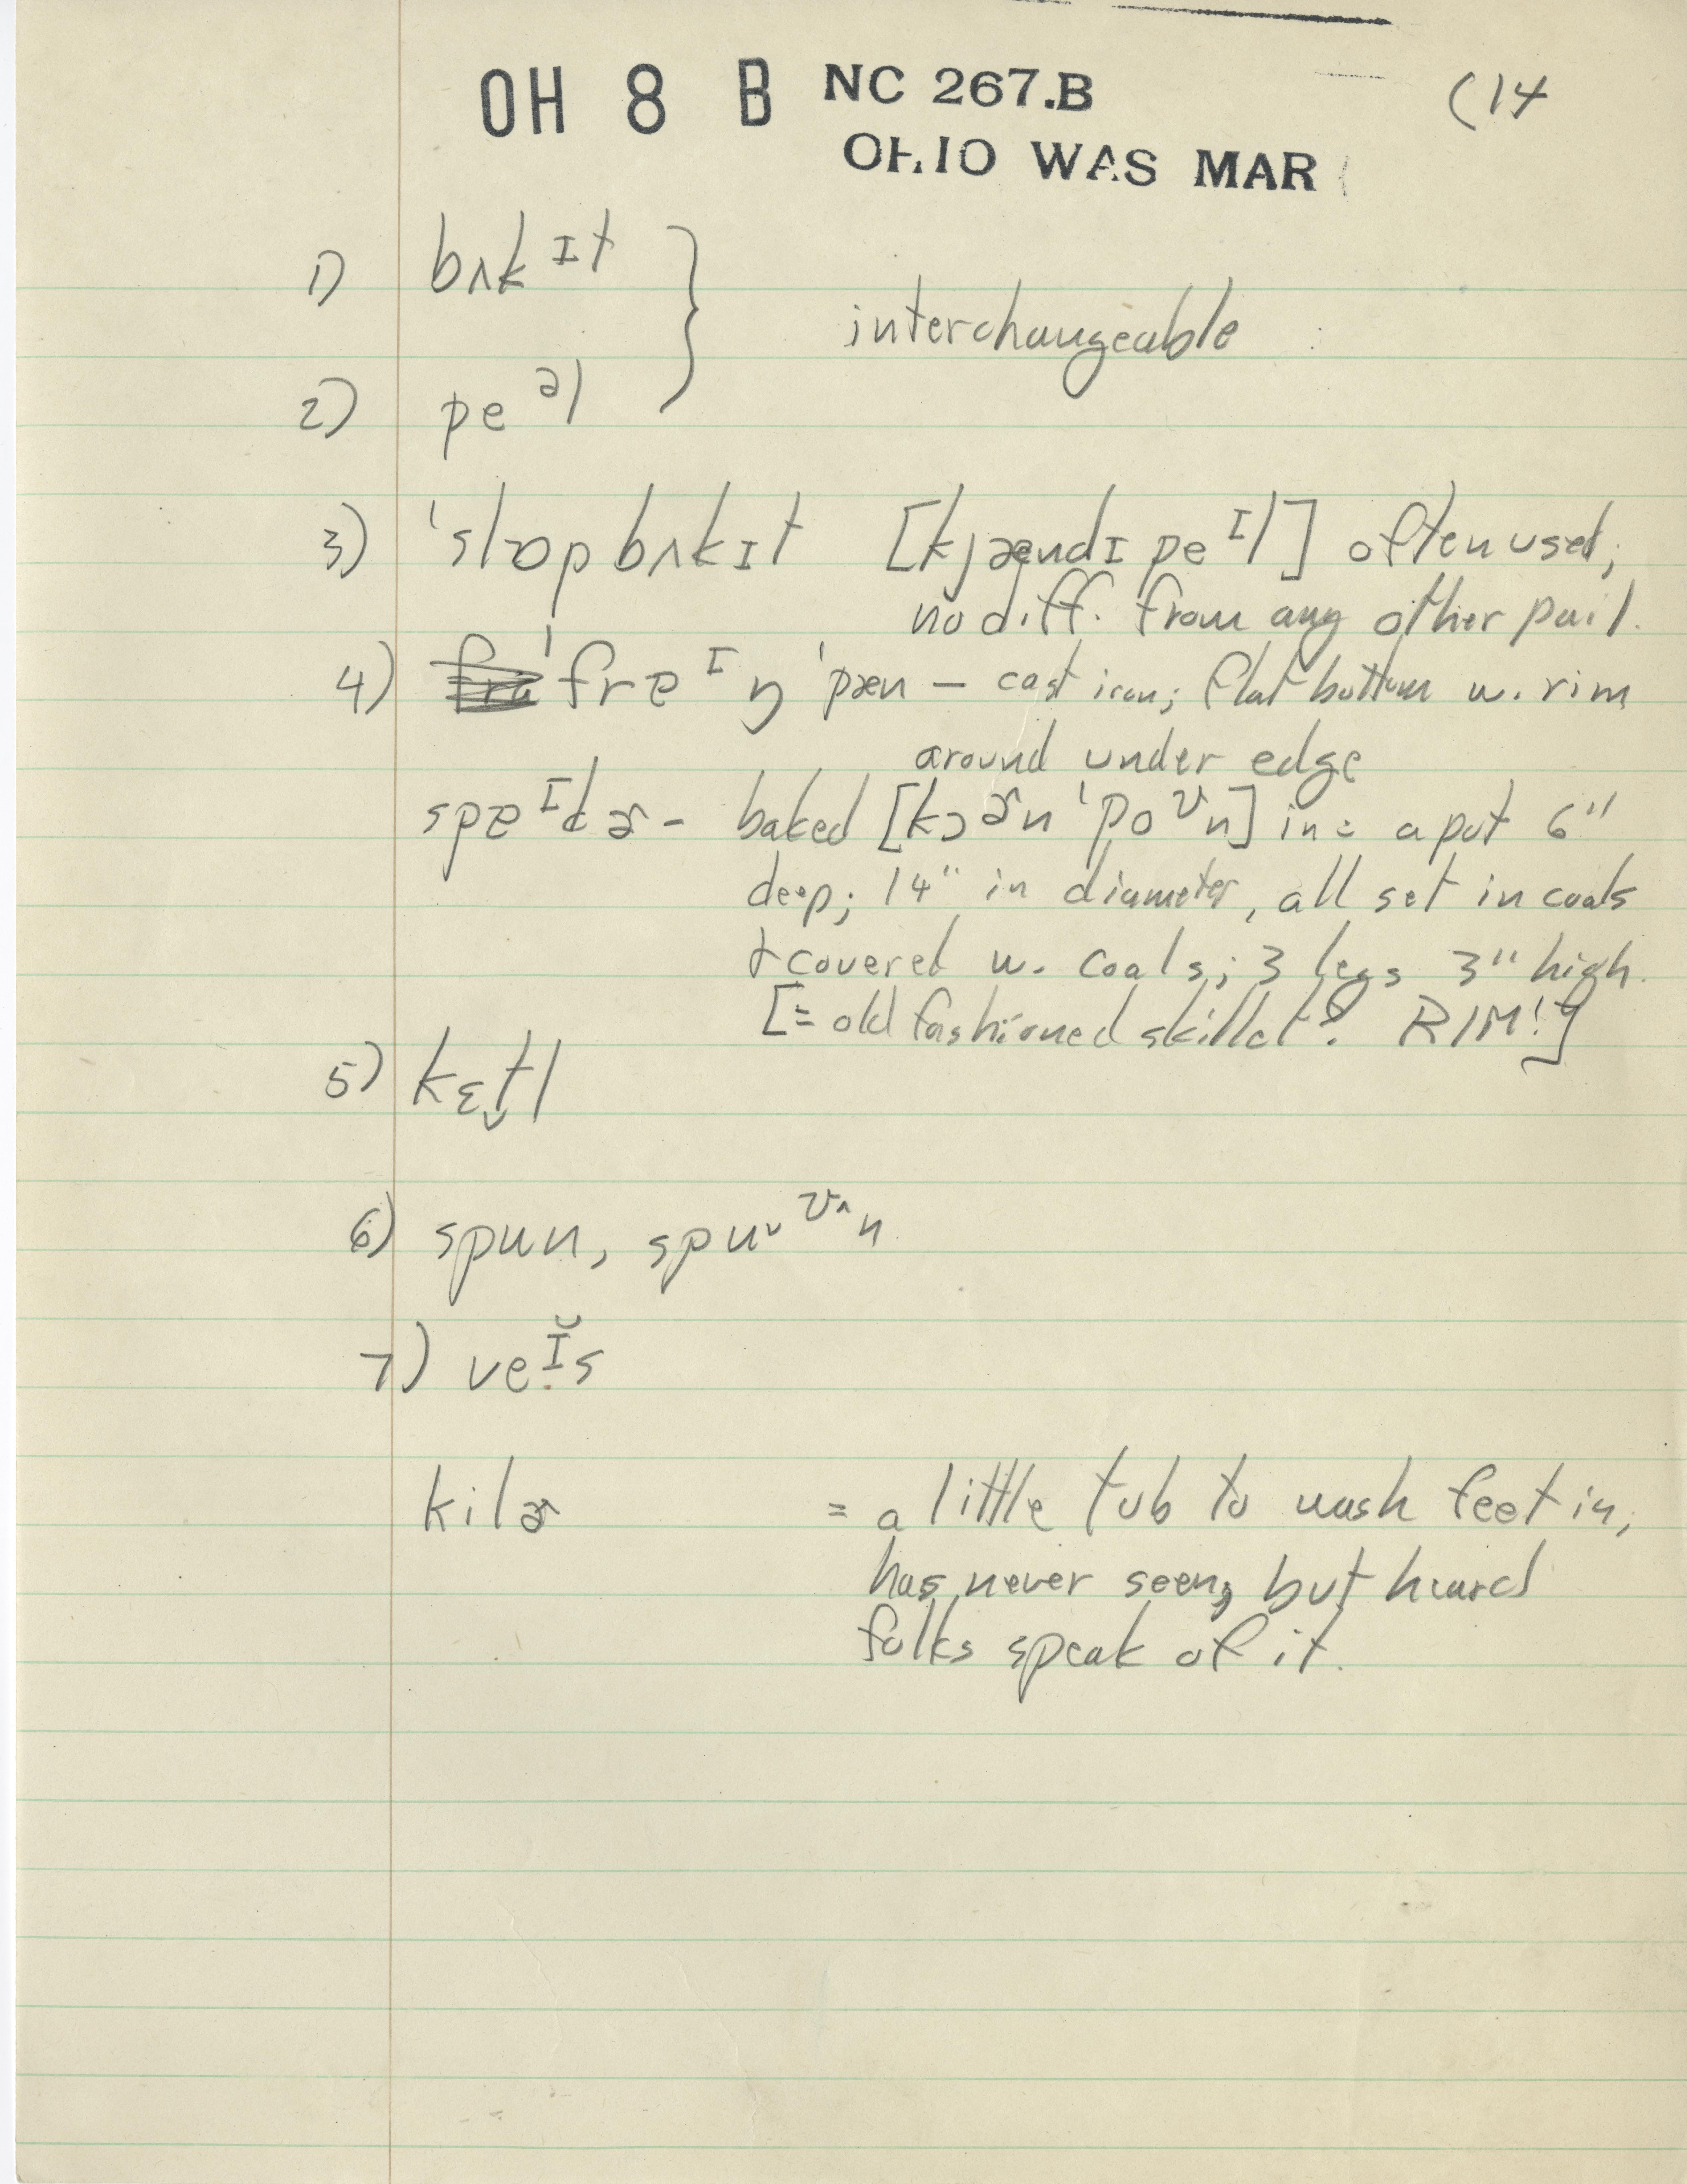 OH 8 B NC 267.B (14
OHIO WAS MAR
1) bʌkɪt
interchangeable
2) peᵊl
3) ˈslɔpbʌkɪt [kjændɪ peᶦl] often used;
no diff. from any other pail.
4) ˈfrɐᶦŋ ˈpæn – cast iron; flat bottom w. rim
around under edge
spɐᶦdɚ - baked [kɔɚn ˈpoᶷn] in = a pot 6"
deep; 14" in diameter, all set in coals
+ covered w. coals; 3 legs 3" high.
[= old fashioned skillet? RIM!]
5) kɛ̬tl
6) spun, spu˅ᶷ^n
7) veɪ̆s
kilɚ = a little tub to wash feet in,
has never seen, but heard
folks speak of it.